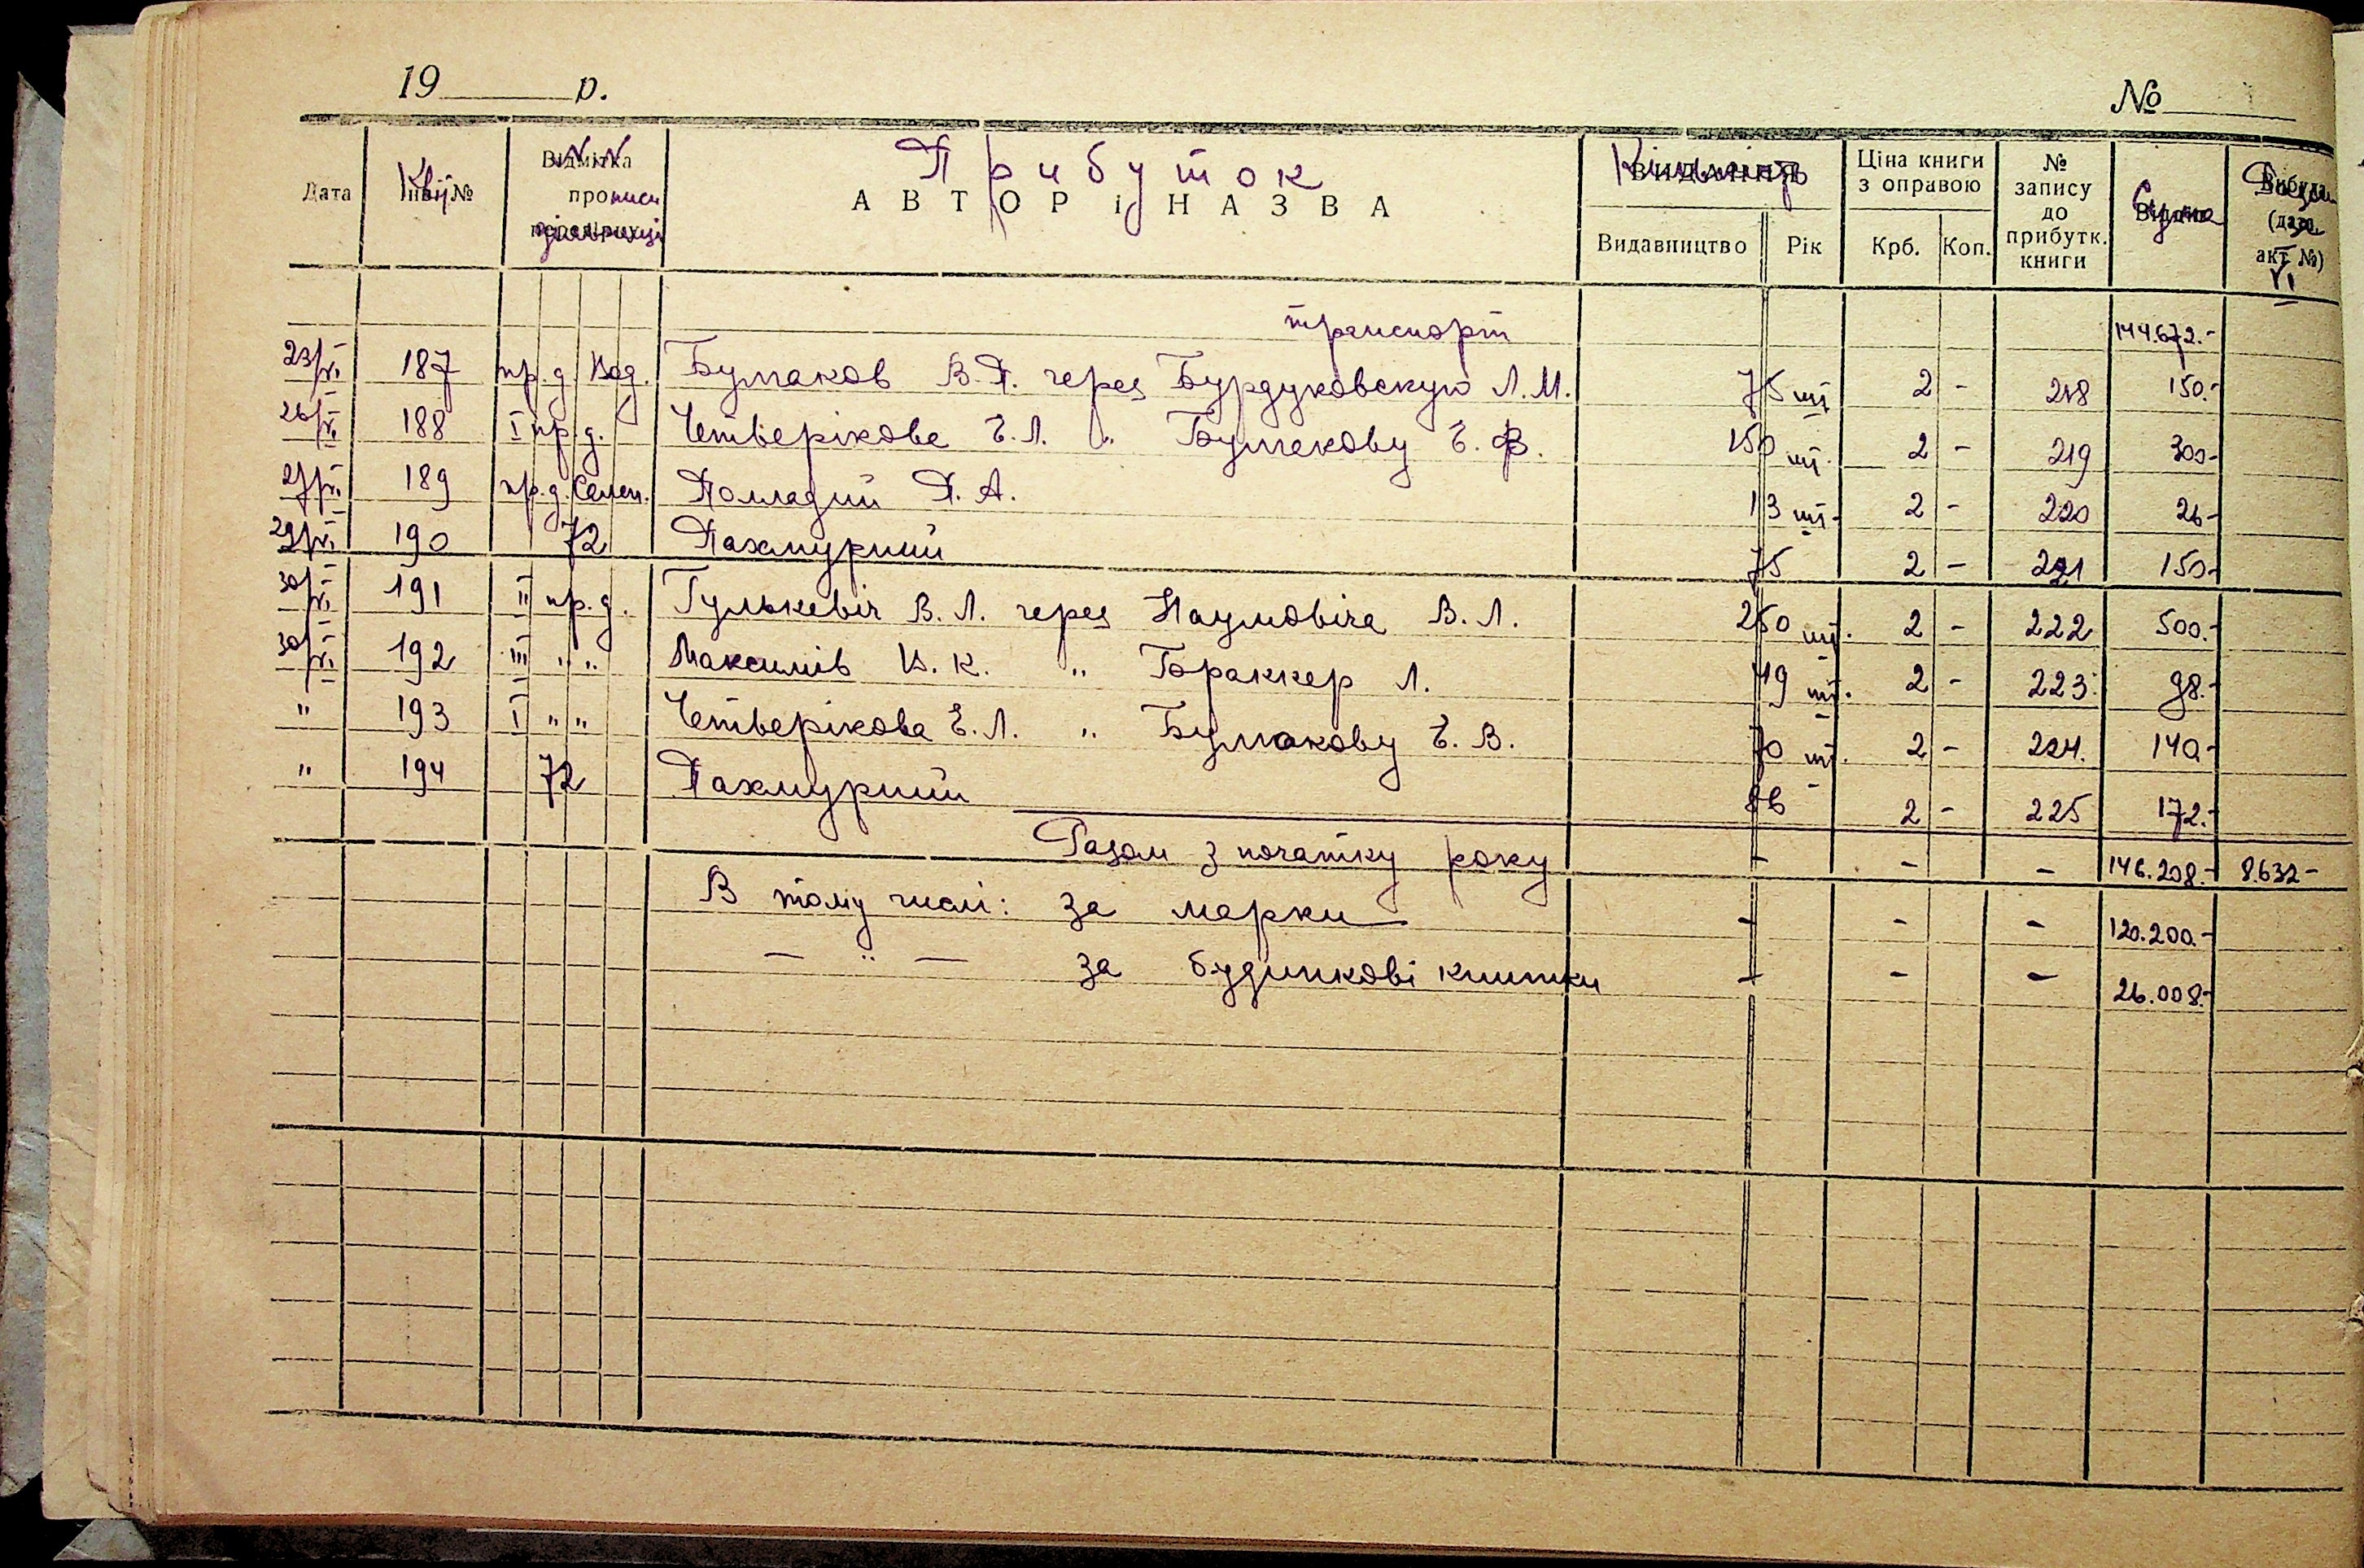 19 р.
№
Дата
Інв. №
Квіт
Відмітка про перевірку
N N
прописн дільниці
Прибуток
АВТОР і НАЗВА
Кількість
ВИДАННЯ
Видавництво Рік
Ціна книги з оправою
Крб. Коп.
№ запису до прибутк. книги
Сума
Вибула (дата, акт №)
VI
транспорт 144.672.-
23/VI 187 пр.д. Вод. Бумаков В.П. через Бурдуковскую Л.М. 75 шт 2 - 218 150.-
26/VI 188 I пр.д. Четверікова Є.Л. " Бумакову Є.В. 150 шт. 2 - 219 300-
27/VI 189 пр.д. Селен. Палладий П.А. 13 шт. 2 - 220 26-
29/VI 190 72 Пахмурний 75 2 - 221 150-
30/VI 191 II пр.д. Гулькевіч В.Л. через Наумовіча В.Л. 250 шт. 2 - 222 500.-
30/VI 192 III " " Максимів К.К. " Браккер Л. 49 шт. 2 - 223 98.-
" 193 I " " Четверікова Є.Л. " Бумакову Є.В. 70 шт. 2 - 224. 140-
" 194 72 Пахмурний 86 2 - 225 172.-
Разом з початку року - - - 146.208.- 8.632-
В тому числі: за марки - - - 120.200.-
— " — за будинкові книжки - - - 26.008.-